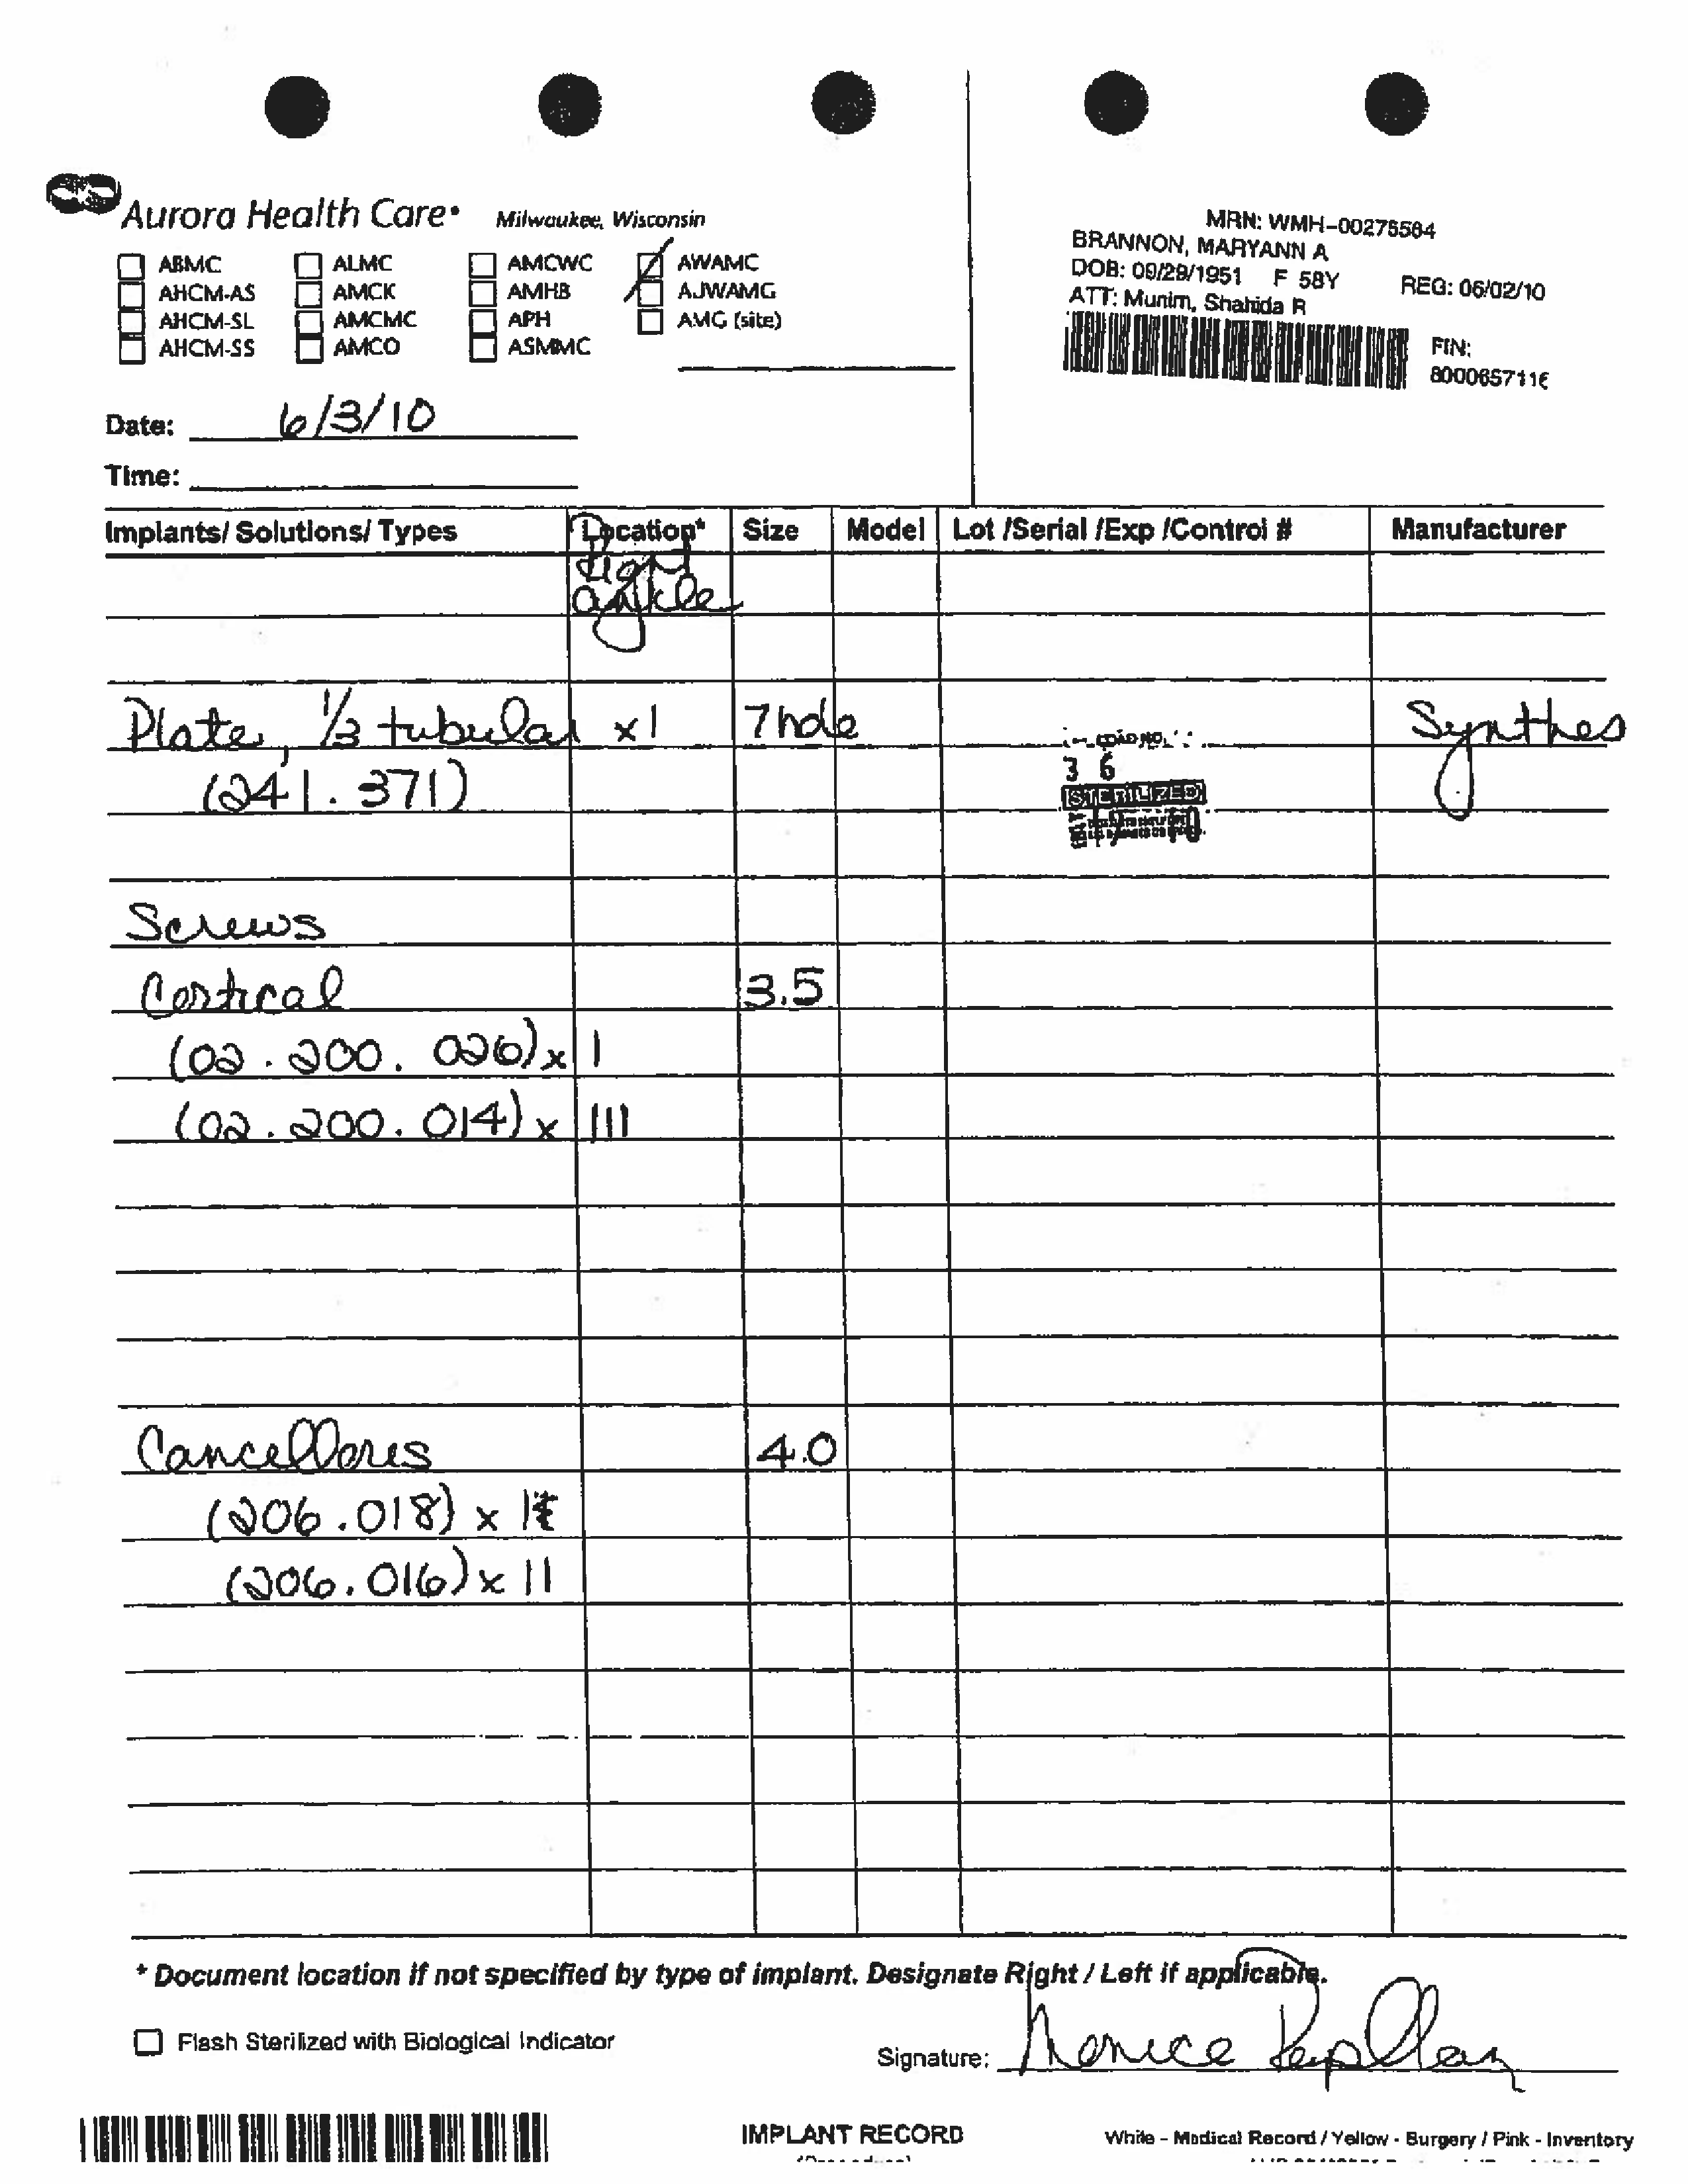 Aurora Health Care Milwaukee, Wisconsin
ABMC ALMC AMCWC AWAMC
AHCM-AS AMCK AMHB AJWAMG
AHCM-SL AMCMC APH AMG (site)
AHCM-SS AMCO ASMMC
MRN: WMH-00276564
BRANNON, MARYANN A
DOB: 09/29/1951 F 58Y REG: 06/02/10
ATT: Munim, Shahida R
FIN:
8000657116
Date: 6/3/10
Time:
Implants/ Solutions/ Types Location* Size Model Lot /Serial /Exp /Control # Manufacturer
Right
ankle
Plate, 1/3 tubular x1 7 hole Synthes
LOAD NO.
(241.371) 3 6
STERILIZED
Screws
Cortical 3.5
(02.200.026) x I
(02.200.014) x III
Cancellous 4.0
(206.018) x I
(206.016) x II
* Document location if not specified by type of implant. Designate Right / Left if applicable.
Flash Sterilized with Biological Indicator
Signature:
IMPLANT RECORD
White - Medical Record / Yellow - Surgery / Pink - Inventory